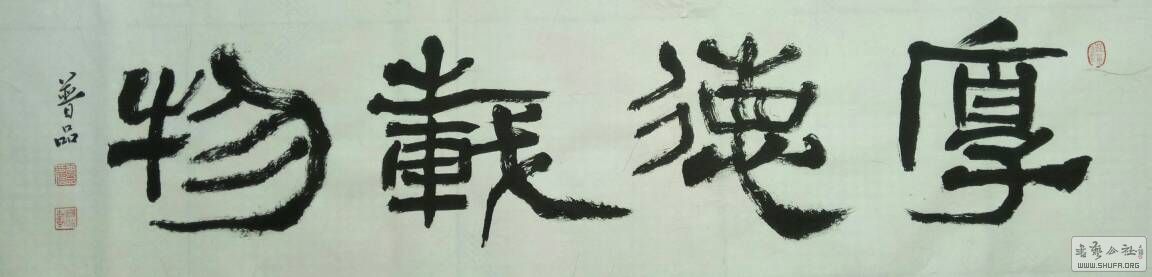 厚德載物
普品
書藝公社
WWW.SHUFA.ORG